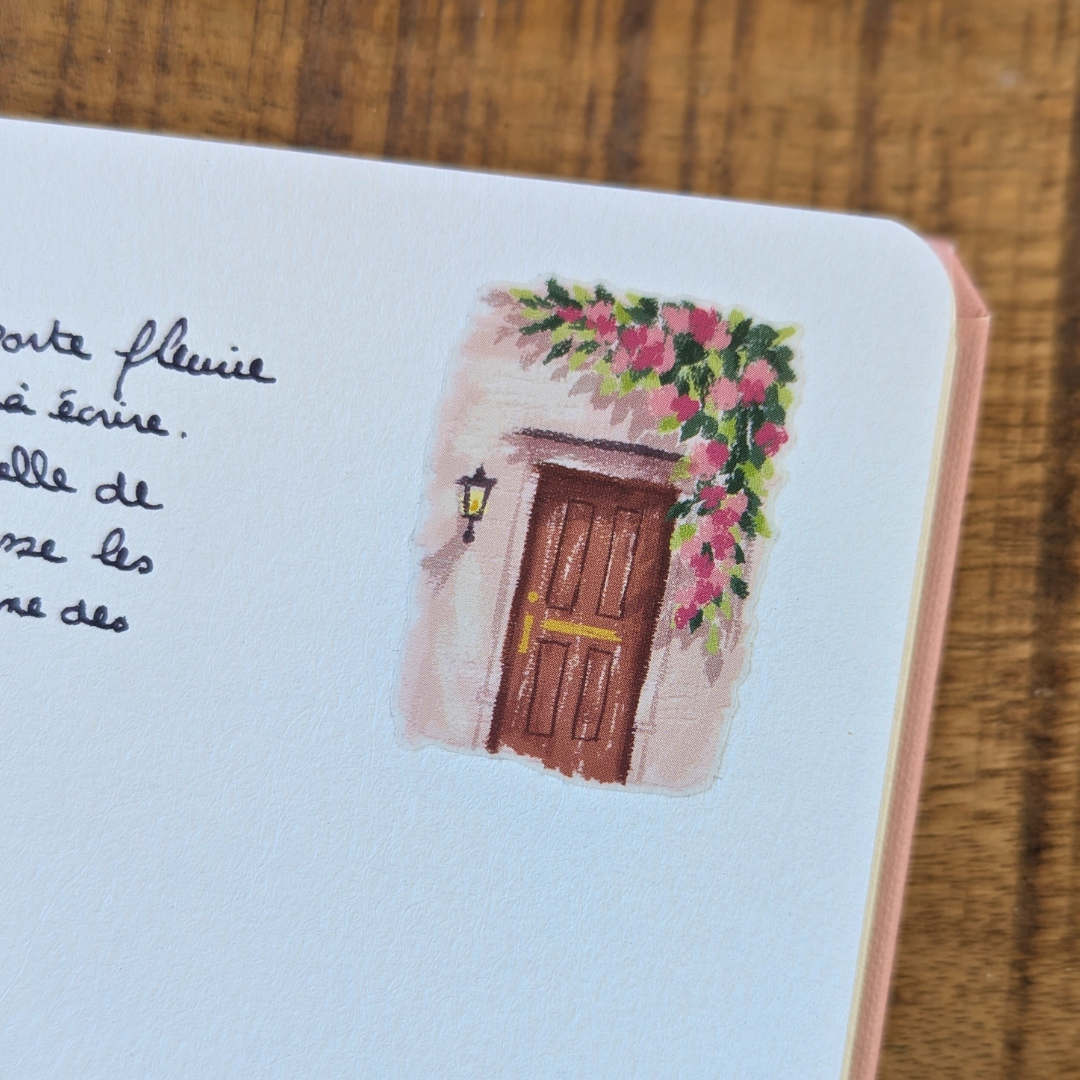 porte fleurie
à écrire.
elle de
sse les
ne des